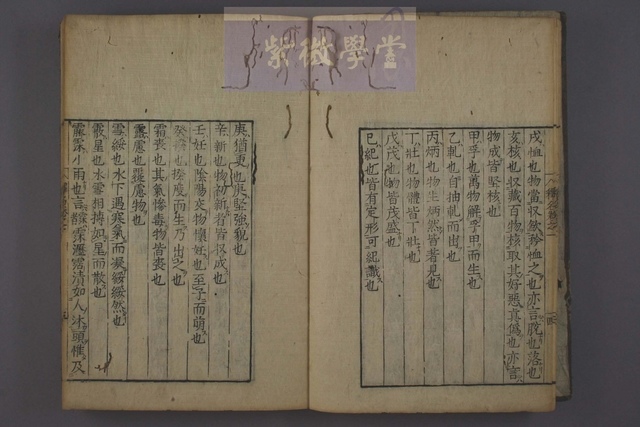 紫微學堂
戌恤也物當収斂矜恤之也亦言脫也落也
亥核也収藏百物核取其好惡真偽也亦言
物成皆堅核也
甲孚也萬物解孚甲而生也
乙軋也自抽軋而出也
丙炳也物生炳然皆著見也
丁壯也物體皆丁壯也
戊茂也物皆茂盛也
己紀也皆有定形可紀識也
庚猶更也庚堅強貌也
辛新也物初新者皆収成也
壬妊也陰陽交物懷妊也至子而萌也
癸揆也揆度而生乃出之也
霜喪也其氣慘毒物皆喪也
露慮也覆慮物也
雪綏也水下遇寒氣而凝綏綏然也
霰星也水雪相搏如星而散也
霡霂小雨也言霡霂瀝霑漬如人沐頭惟及